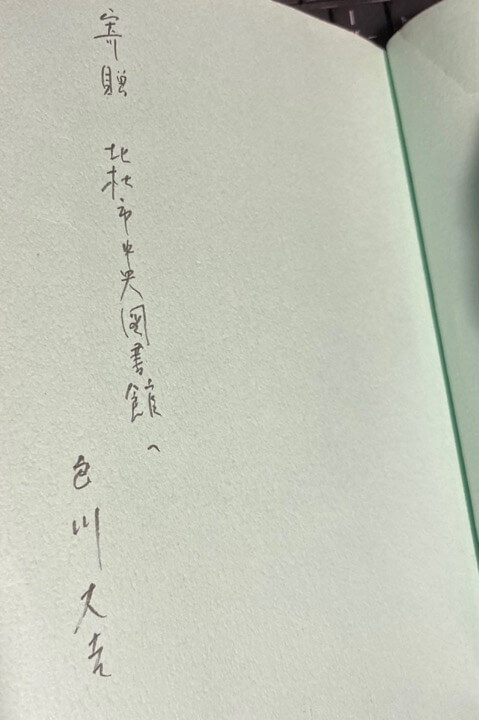 寄贈 北杜市中央図書館へ
色川大吉